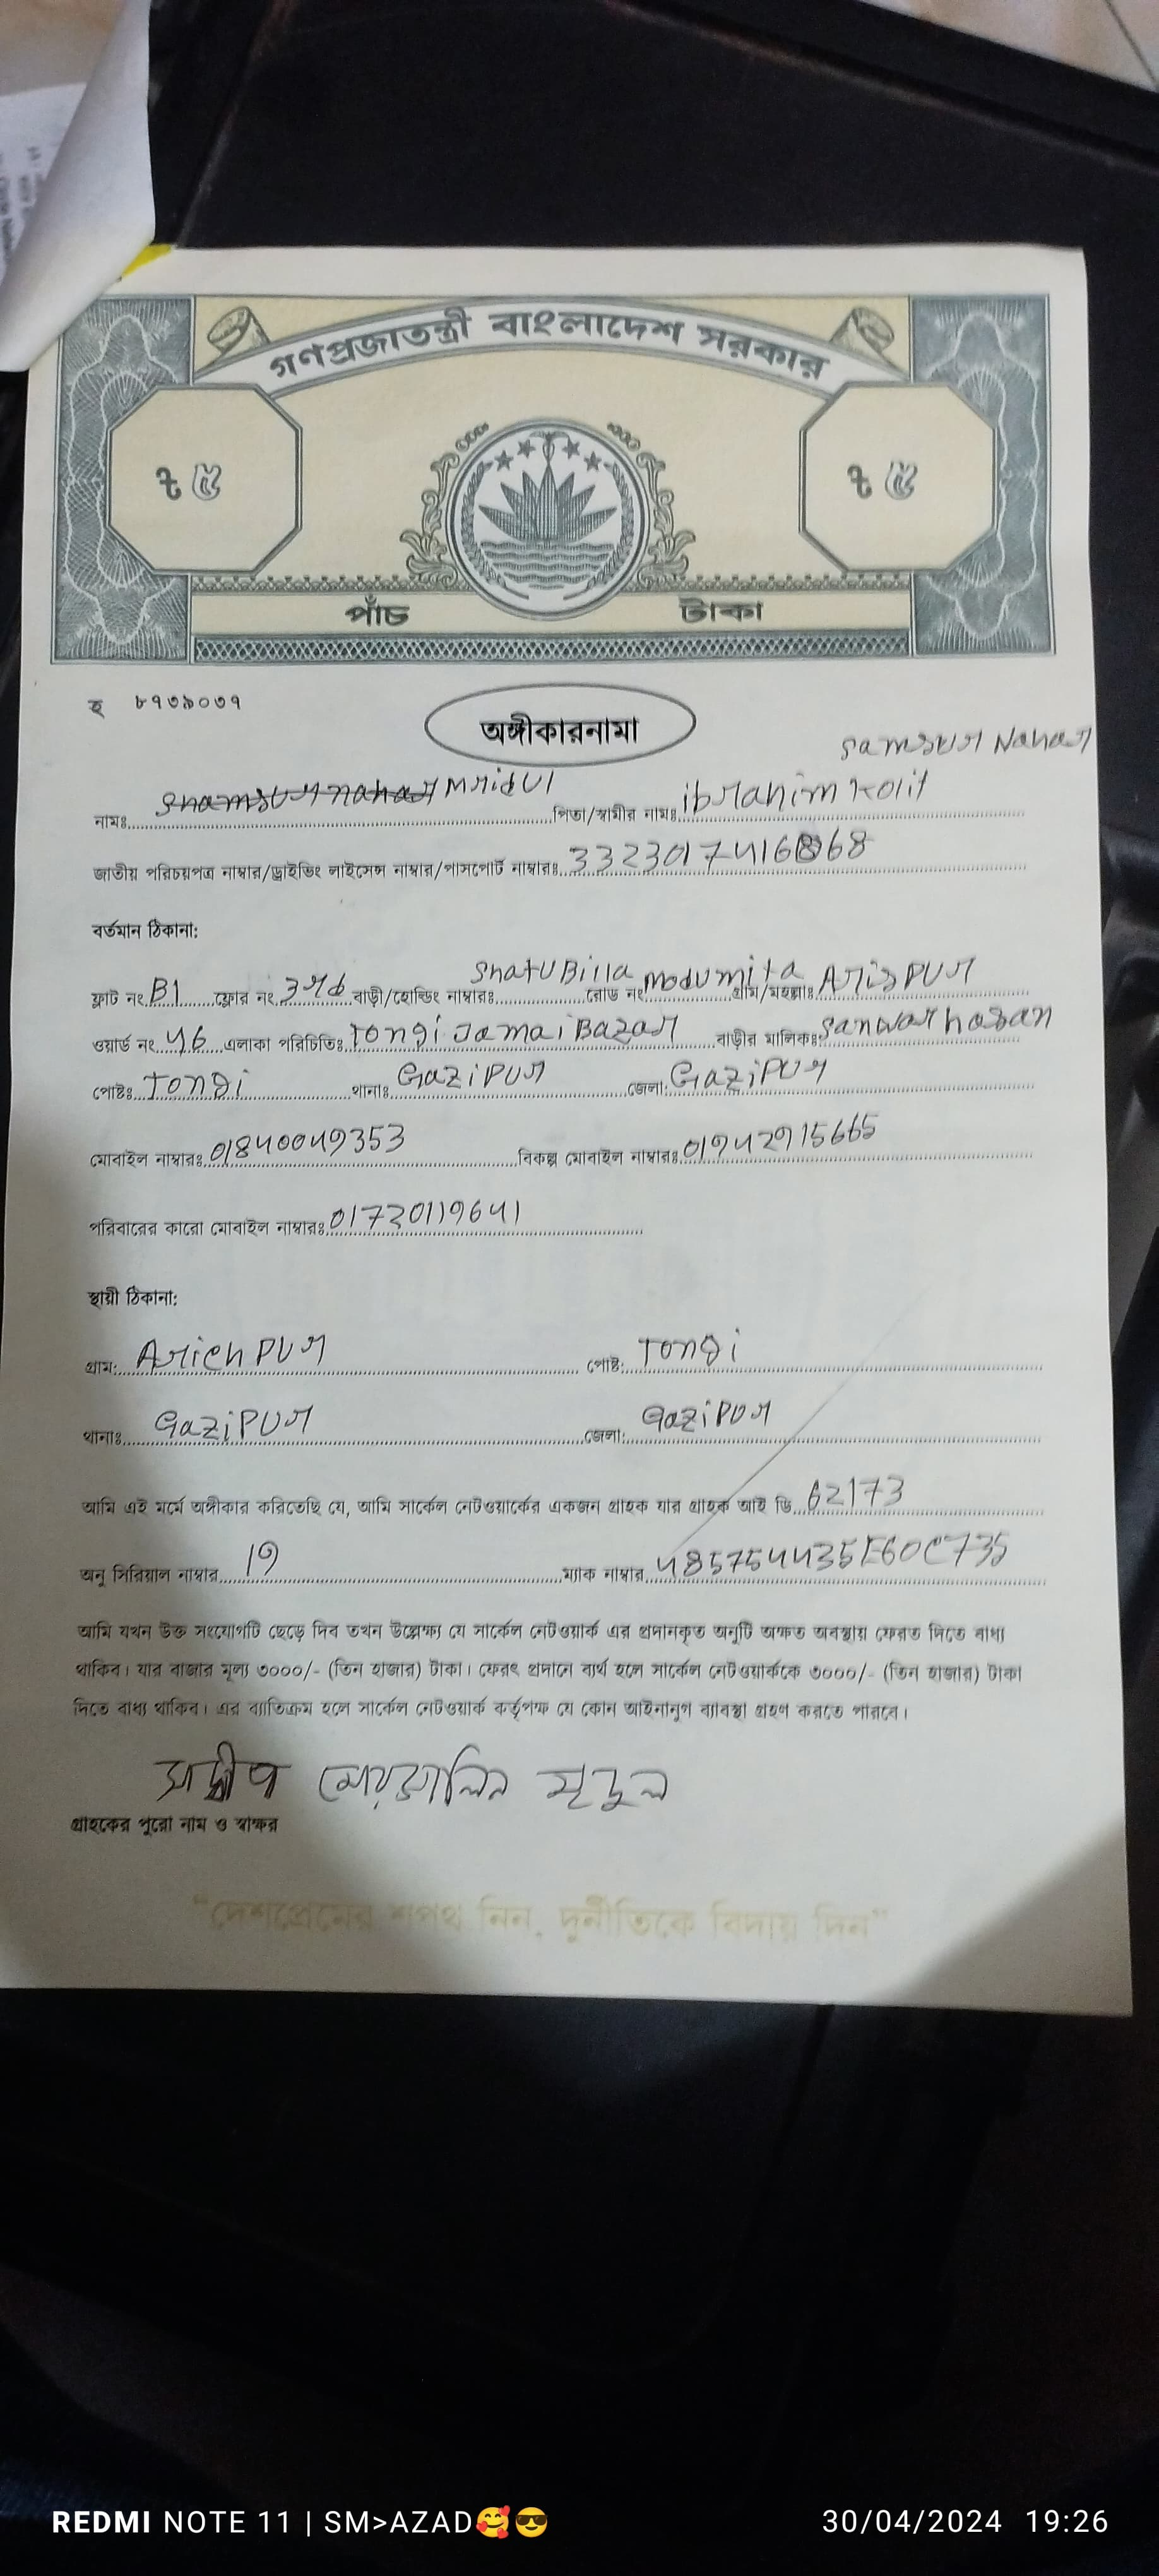 গণপ্রজাতন্ত্রী বাংলাদেশ সরকার
৳ ৫ ৳ ৫
পাঁচ টাকা
হ ৮৭৩৯০৩৭
অঙ্গীকারনামা
Samsur Nahar
নামঃ Mridul পিতা/স্বামীর নামঃ ibrahim Kolil
জাতীয় পরিচয়পত্র নাম্বার/ড্রাইভিং লাইসেন্স নাম্বার/পাসপোর্ট নাম্বারঃ
বর্তমান ঠিকানা:
ফ্লাট নং B1 ফ্লোর নং 3rd বাড়ী/হোল্ডিং নাম্বারঃ ShatuBilla রোড নং Modumita গ্রাম/মহল্লাঃ ArisPUr
ওয়ার্ড নং 46 এলাকা পরিচিতিঃ Tongi Jamai Bazar বাড়ীর মালিকঃ Sanwar hosan
পোষ্টঃ Tongi থানাঃ GaziPUr জেলা: GaziPUr
মোবাইল নাম্বারঃ 01840049353 বিকল্প মোবাইল নাম্বারঃ 01942915665
পরিবারের কারো মোবাইল নাম্বারঃ 01730119641
স্থায়ী ঠিকানা:
গ্রাম: ArichPUr পোষ্ট: Tongi
থানাঃ GaziPUr জেলা: GaziPUr
আমি এই মর্মে অঙ্গীকার করিতেছি যে, আমি সার্কেল নেটওয়ার্কের একজন গ্রাহক যার গ্রাহক আই ডি 62173
অনু সিরিয়াল নাম্বার 19 ম্যাক নাম্বার 485754435E60C735
আমি যখন উক্ত সংযোগটি ছেড়ে দিব তখন উল্লেক্ষ্য যে সার্কেল নেটওয়ার্ক এর প্রদানকৃত অনুটি অক্ষত অবস্থায় ফেরত দিতে বাধ্য
থাকিব। যার বাজার মূল্য ৩০০০/- (তিন হাজার) টাকা। ফেরৎ প্রদানে ব্যর্থ হলে সার্কেল নেটওয়ার্ককে ৩০০০/- (তিন হাজার) টাকা
দিতে বাধ্য থাকিব। এর ব্যাতিক্রম হলে সার্কেল নেটওয়ার্ক কর্তৃপক্ষ যে কোন আইনানুগ ব্যাবস্থা গ্রহণ করতে পারবে।
মৃদুল
গ্রাহকের পুরো নাম ও স্বাক্ষর
"দেশপ্রেমের শপথ নিন, দুর্নীতিকে বিদায় দিন"
REDMI NOTE 11 | SM>AZAD🥰😎 30/04/2024 19:26